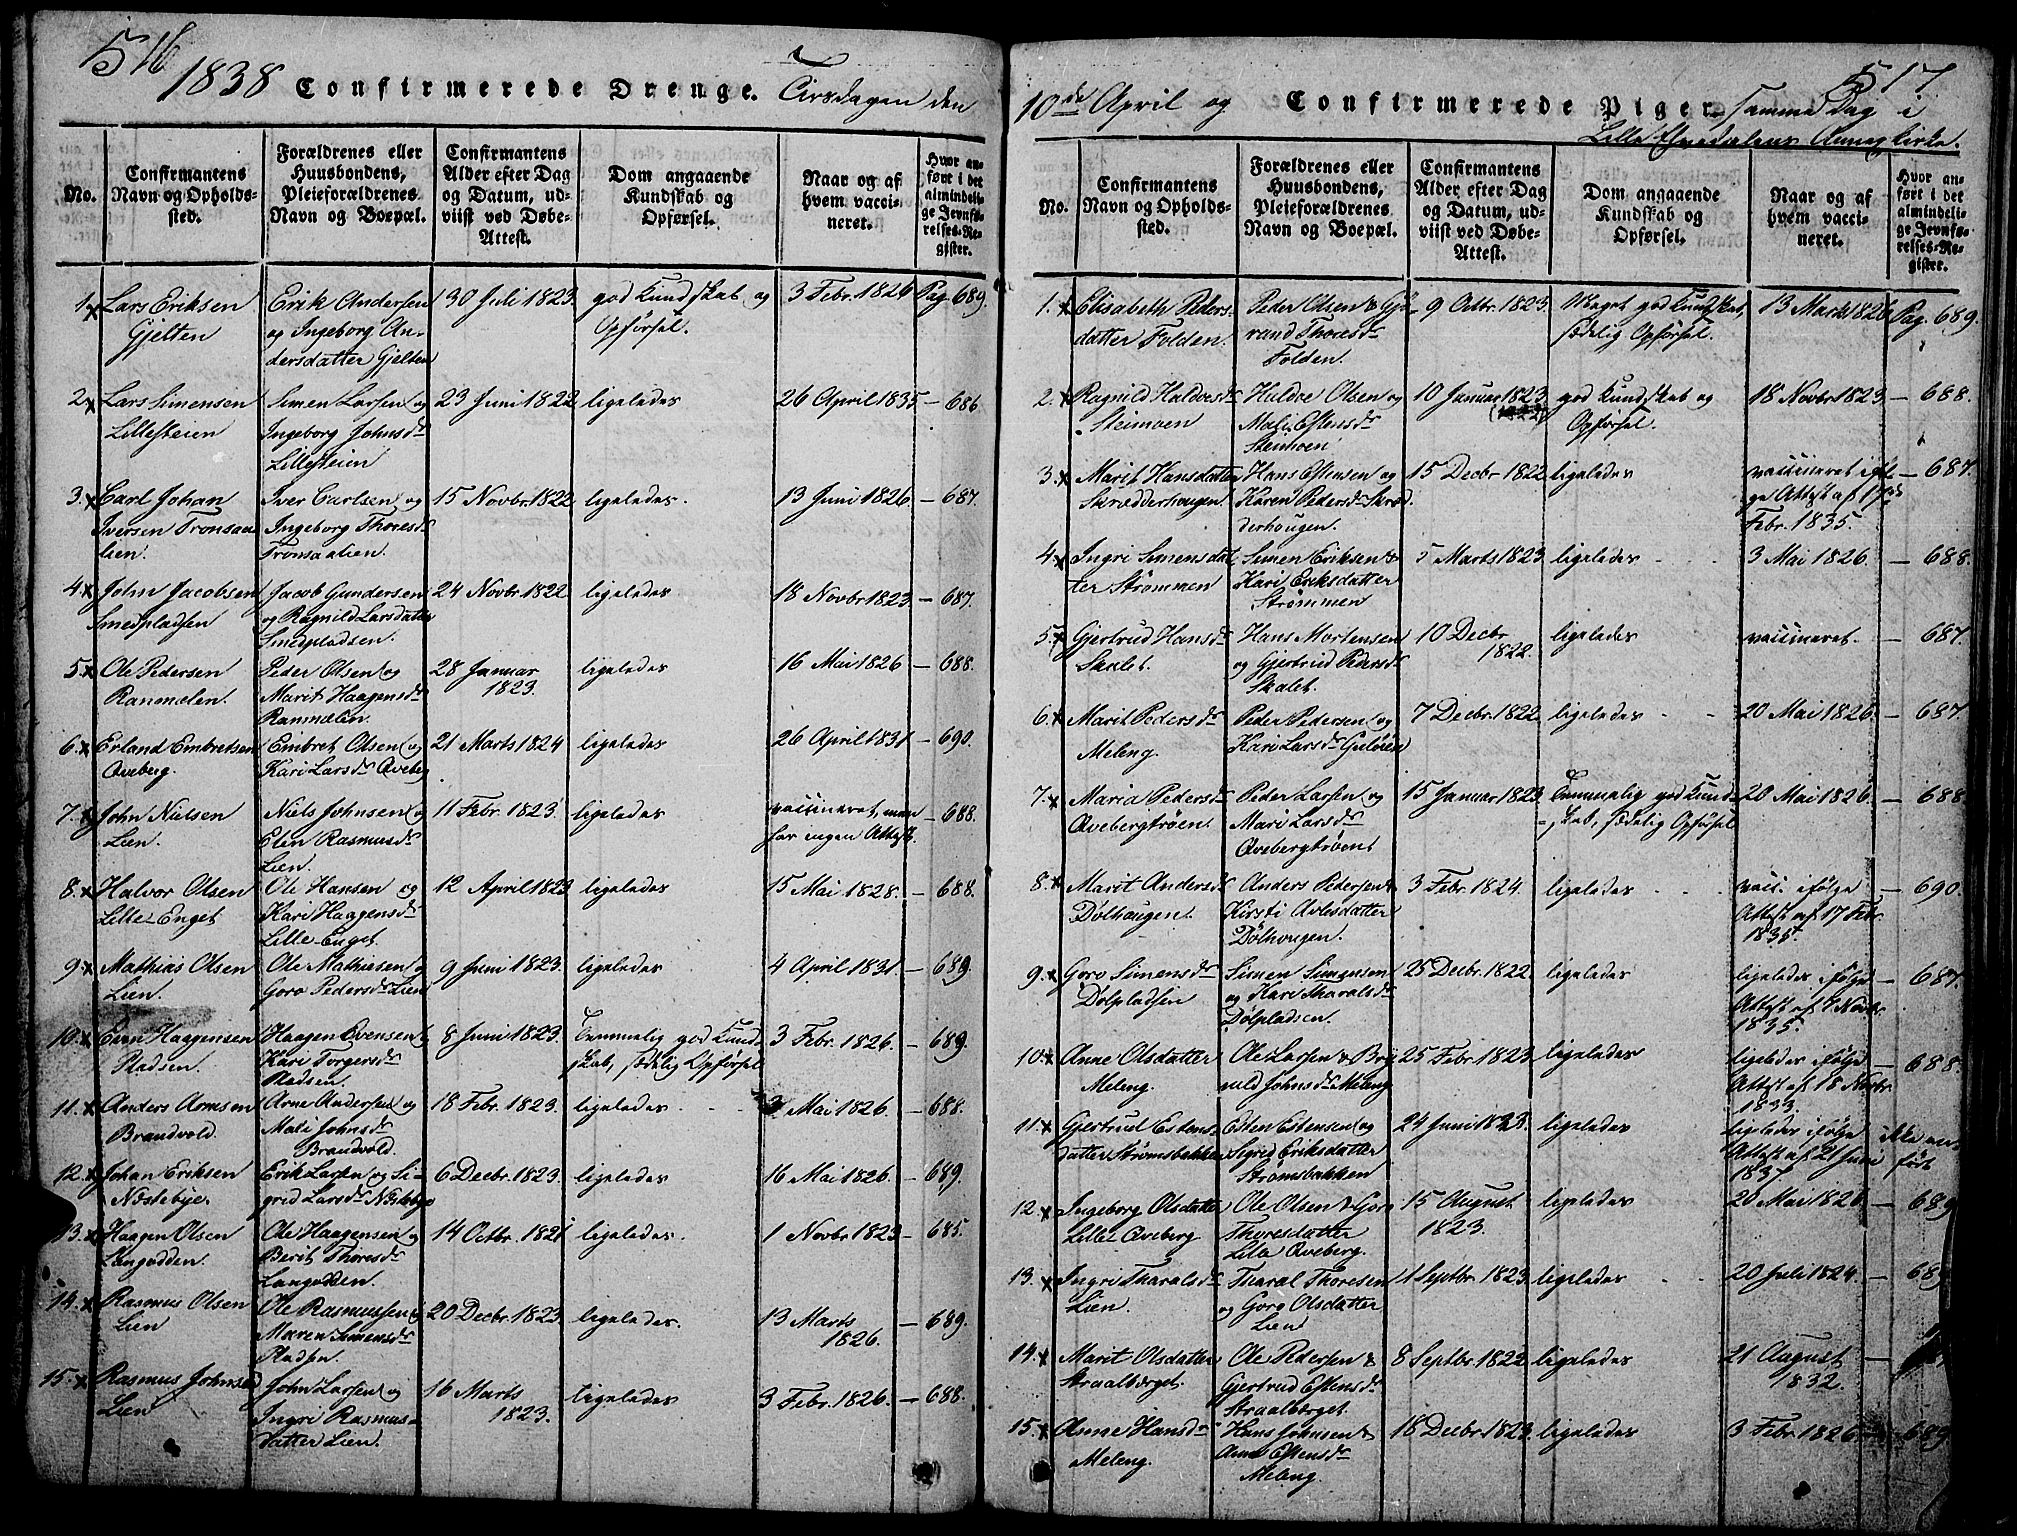 516
1838 Confirmerede Drenge. Tirsdagen den
No.
Confirmantens Navn og Opholdssted.
Forældrenes eller Huusbondens, Pleieforældrenes Navn og Boepæl.
Confirmantens Alder efter Dag og Datum, udviist ved Døbe-Attest.
Dom angaaende Kundskab og Opførsel.
Naar og af hvem vaccineret.
Hvor anført i det almindelige Jevnførelses-Register.
1. Lars Eriksen Erik Andersen 30 Juli 1823. god Kundskab og 3 Febr. 1826 Pag. 689.
Gjelten og Ingeborg An- Opførsel.
dersdatter Gjelten
2. Lars Simensen Simen Larsen og 23 Juni 1822 ligeledes 26 April 1835 – 686
Lillesteien Ingeborg Johnsdr
Lillesteien
3. Carl Johan Iver Carlsen og 15 Novbr. 1822 ligeledes. 13 Juni 1826. – 687.
Iversen Tronsaa- Ingeborg Thoresdr
lien. Tronsaalien.
4. John Jacobsen Jacob Gundersen 24 Novbr. 1822 ligeledes 18 Novbr 1823. – 687.
Smedpladsen og Ragnild Larsdatter
Smedpladsen.
5. Ole Pedersen Peder Olsen og 28 Januar ligeledes 16 Mai 1826 – 688.
Ranmælen. Marit Haagensdr 1823.
Ranmælen.
6. Erland Embretsen Embret Olsen og 21 Marts 1824 ligeledes 26 April 1831 – 690.
Qveberg. Kari Larsdr Qveberg
7. John Nielsen Niels Johnsen og 11 Febr. 1823 ligeledes vaccineret, men – 688.
Lien. Elen Rasmusdr har ingen Attest.
Lien.
8. Halvor Olsen Ole Hansen og 12 April 1823 ligeledes 15 Mai 1828. – 688.
Lille-Enget Kari Haagensdr
Lille-Enget.
9. Mathias Olsen Ole Mathiesen og 9 Juni 1823. ligeledes 4 April 1831. – 689.
Lien. Goro Pedersdr Lien
10. Even Haagensen Haagen Evensen og 8 Juni 1823. Temmelig god Kund- 3 Febr. 1826. – 689.
Pladsen. Kari Torgersdr skab, sædelig Opførsel
Pladsen.
11. Anders Arnesen Arne Andersen og 18 Febr. 1823. ligeledes 3 Mai 1826. – 688.
Brandvold. Mali Johnsdr
Brandvold.
12. Johan Eriksen Erik Larsen og Si- 6 Decbr. 1823. ligeledes 16 Mai 1826. – 689.
Næstebye. grid Larsdr Næstebye
13. Haagen Olsen Ole Haagensen og 14 Octbr. 1821 ligeledes. 1 Novbr 1823 – 685.
Langodden. Berit Thoresdr
Langodden.
14. Rasmus Olsen Ole Rasmussen og 20 Decbr. 1823. ligeledes. 13 Marts – 689.
Lien Maren Simensdr 1826.
Pladsen.
15. Rasmus Johnsen John Larsen og 16 Marts ligeledes 3 Febr. 1826. – 688.
Lien Ingri Rasmus- 1823.
datter Lien.
517.
10de April og Confirmerede Piger samme Dag i
Lille Elvedalens Annexkirke.
No.
Confirmantens Navn og Opholdssted.
Forældrenes eller Huusbondens, Pleieforældrenes Navn og Boepæl.
Confirmantens Alder efter Dag og Datum, udviist ved Døbe-Attest.
Dom angaaende Kundskab og Opførsel.
Naar og af hvem vaccineret.
Hvor anført i det almindelige Jevnførelses-Register.
1. Elisabeth Peders- Peder Olsen & Gjø- 9 Octbr. 1823. Meget god Kundskab, 13 Marts 1826 Pag. 689.
datter Folden. rand Thoresdr sædelig Opførsel.
Folden.
2. Ragnild Haldvesdr Haldve Olsen og 10 Januar 1823 god Kundskab og 18 Novbr. 1823. – 688.
Steimoen Mali Estensdr Opførsel.
Steimoen
3. Marit Hansdatter Hans Estensen og 15 Decbr 1822 ligeledes vaccineret iføl- – 687.
Skredderhougen. Karen Pedersdr Skred- ge Attest af 17de
derhougen. Febr. 1835.
4. Ingri Simensdat- Simen Eriksen & 5 Marts 1823 ligeledes 3 Mai 1826. – 688.
ter Strømmen Kari Eriksdatter
Strømmen
5. Gjertrud Hansdr Hans Mortensen 10 Decbr ligeledes vaccineret. – 687.
Skalet. og Gjertrud Pedersdr 1822.
Skalet.
6. Marit Pedersdr Peder Pedersen og 7 Decbr. 1822 ligeledes 20 Mai 1826. – 687.
Meleng. Kari Larsdr
7. Maria Pedersdr Peder Larsen og 15 Januar 1823 Temmelig god Kund- 20 Mai 1826. – 688
Qvebergtrøen. Mari Larsdr skab, sædelig Opførsel
Qvebergtrøent
8. Marit Andersdr Anders Pedersen & 3 Febr. 1824. ligeledes vacc. ifølge – 690.
Dølhougen. Kirsti Avlesdatter Attest af 17 Febr.
Dølhougen. 1835.
9. Goro Simensdr Simen Simensen 25 Decbr. 1822. ligeledes ligeledes ifølge – 687.
Dølpladsen og Kari Tharalsdr Attest af 7 Novbr
Dølpladsen. 1835.
10. Anne Olsdatter Ole Larsen & Bry- 25 Febr. 1823. ligeledes ligeledes ifølge – 688.
Meleng. nild Johnsdr Meleng Attest af 18 Novbr.
1833.
11. Gjertrud Estens- Esten Estensen og 24 Juni 1823. ligeledes ligeledes ifølge ikke an-
datter Strømsbakken Sigrid Eriksdatter Attest af 21 Juni ført
Strømsbakken 1837
12. Ingeborg Olsdatter Ole Olsen & Goro 15 August ligeledes 20 Mai 1826 – 689
Lille Qveberg Thoresdatter 1823.
Lille Qveberg.
13. Ingri Tharalsdr Tharal Thoresen 1 Septbr. 1823. ligeledes 20 Juli 1824. – 689
Lien. og Goro Olsdatter
Lien
14. Marit Olsdatter Ole Pedersen & 8 Septbr. 1822 ligeledes 21 August –
Straalberget. Gjertrud Estensdr 1832.
Straalberget.
15. Anne Hansdr Hans Johnsen & 18 Decbr. 1823. ligeledes 3 Febr. 1826 689
Meleng. Anne Estensdr
Meleng.